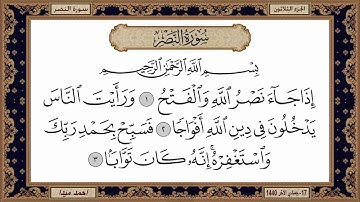 سورة النصر
الجزء الثلاثون
سُورَةُ النَّصْرِ
بِسْمِ اللَّهِ الرَّحْمَٰنِ الرَّحِيمِ
إِذَا جَآءَ نَصْرُ اللَّهِ وَالْفَتْحُ ١ وَرَأَيْتَ النَّاسَ
يَدْخُلُونَ فِي دِينِ اللَّهِ أَفْوَاجًا ٢ فَسَبِّحْ بِحَمْدِ رَبِّكَ
وَاسْتَغْفِرْهُ إِنَّهُ كَانَ تَوَّابًا ٣
احمد ميدا
17- جمادي الآخر 1440